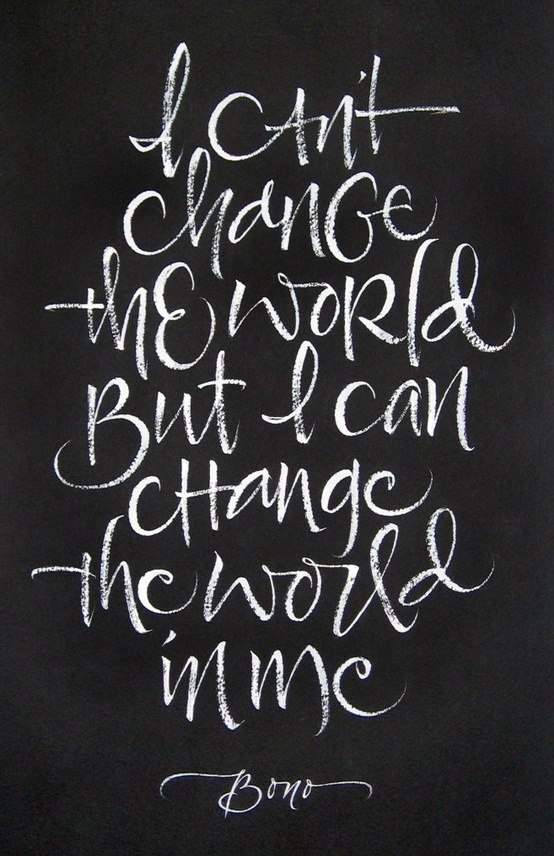 I can't
change
the world
But I can
change
the world
in me
Bono